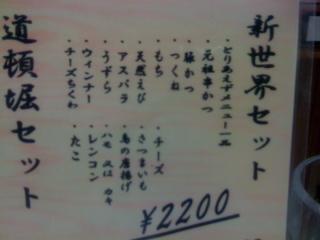 新世界セット
・とりあえずメニュー一品
・元祖串かつ
・豚かつ
・つくね
・もち
・チーズ
・天然えび
・さつまいも
・アスパラ
・鳥の唐揚げ
・うずら
・ハモ 又は カキ
・ウィンナー
・レンコン
・チーズちくわ
・たこ
¥2200
道頓堀セット